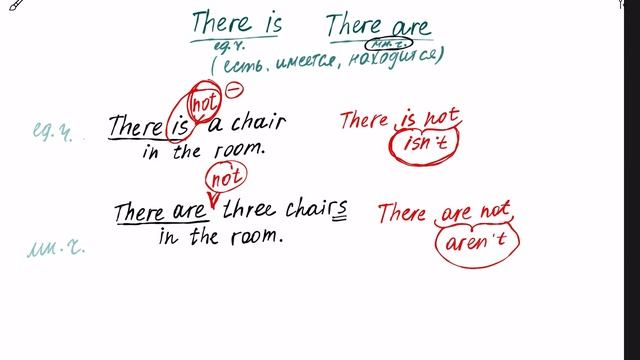 There is There are
ед.ч. мн.ч.
(есть. имеется, находится)
not –
ед.ч. There is a chair There is not
in the room. isn't
not
There are three chairs There are not
мн.ч. in the room. aren't